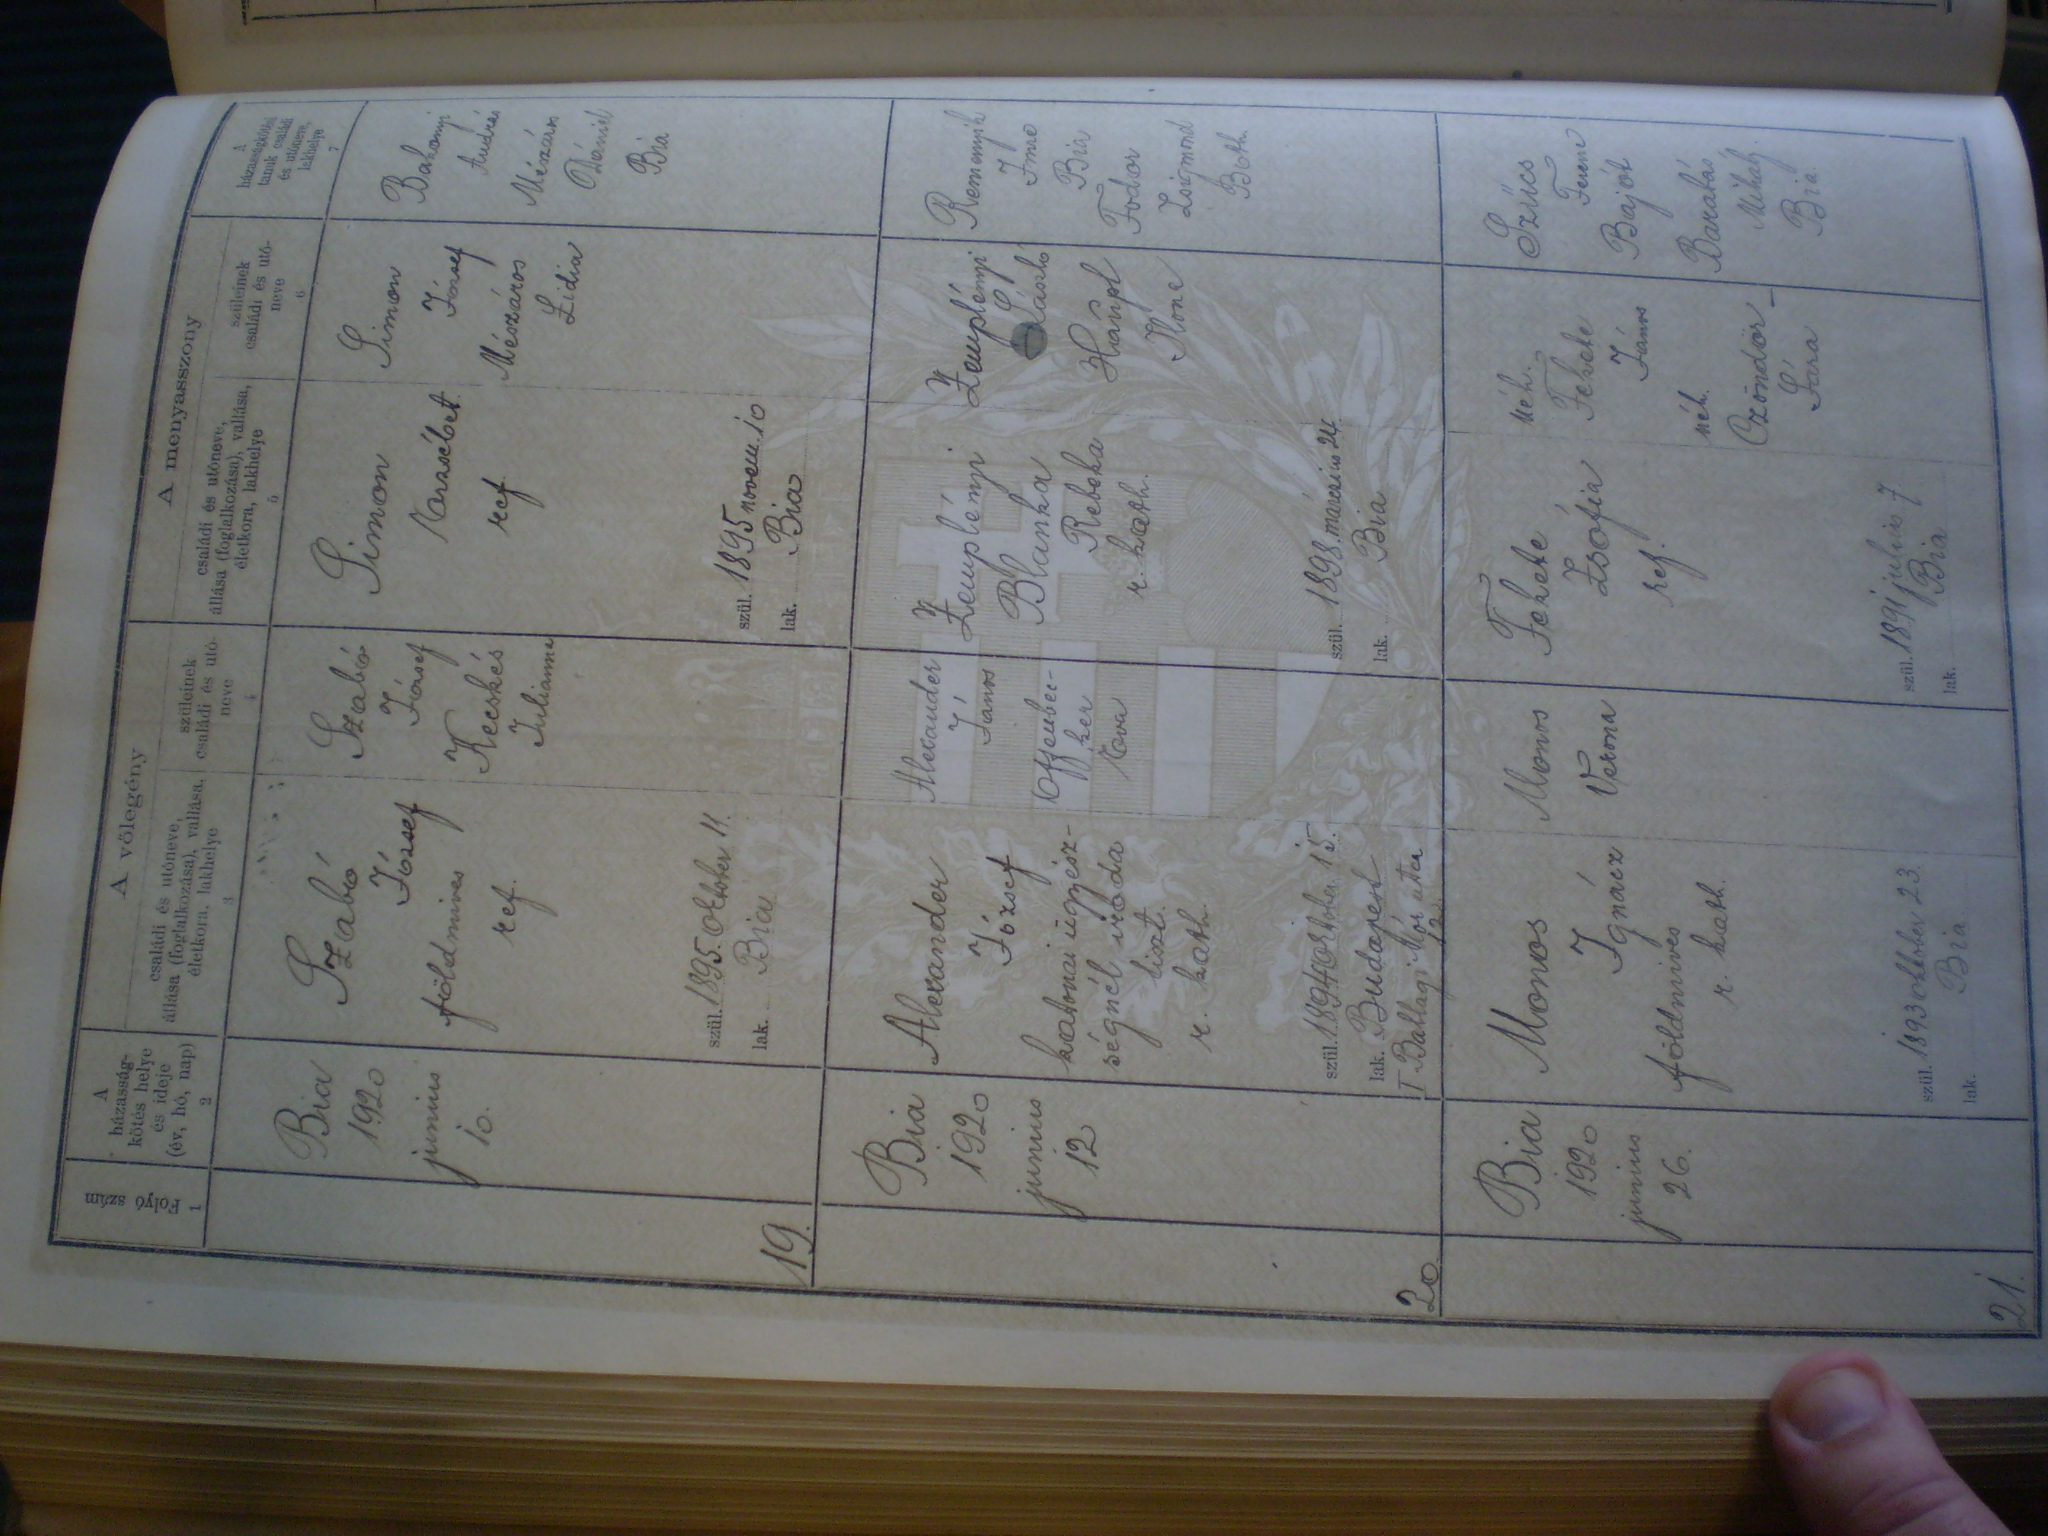 A
házasság-
kötés helye
és ideje
(év, hó, nap)
2
Folyó
szám
1
A vőlegény
családi és utóneve,
állása (foglalkozása), vallása,
életkora, lakhelye
3
szüleinek
családi és utó-
neve
4
A menyasszony
családi és utóneve,
állása (foglalkozása), vallása,
életkora, lakhelye
5
szüleinek
családi és utó-
neve
6
A
házasságkötési
tanuk családi
és utóneve,
lakhelye
7
19.
Bia
1920
junius
10.
Szabó
József
földmives
ref.
szül. 1895. október 11.
lak. Bia
Szabó
József
Kecskés
Julianna
Simon
Erzsébet
ref.
szül. 1895 novem. 10
lak. Bia
Simon
József
Mészáros
Lidia
Bakonyi
András
Mészáros
Dániel
Bia
20
Bia
1920
junius
12
Alexander
József
katonai ügyész-
ségnél iroda
tiszt.
r. kath.
szül. 1894 október 15.
lak. Budapest
I Ballagi Mór utca
12.
Alexander
János
Offenbec-
ker
Éva
Zemplényi
Blanka
Rebeka
r. kath.
szül. 1898. március 24.
lak. Bia
Zemplényi
László
Haupl
Ilona
Remenyik
Imre
Bia
Fodor
Zsigmond
Both.
21.
Bia
1920
junius
26.
Monos
Ignácz
földmives
r. kath.
szül. 1893 október 23.
lak. Bia
Monos
Verona
Fekete
Zsófia
ref.
szül. 1891 julius 7
lak. Bia
néh.
Fekete
János
néh.
Czöndör-
Sára
Szücs
Ferenc
Bajót
Barabás
Mihály
Bia